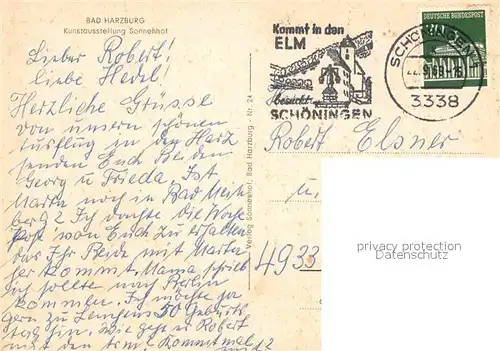 BAD HARZBURG
Kunstausstellung Sonnenhof
Lieber Robert!
liebe Hedel!
Herzliche Grüsse
von unsern schönen
Ausflug in den Harz
senden Euch Beiden
Georg u Frieda. Ist
Marta noch in Bad Mein
berg? Ich dachte die Woche
Post von Euch zu erhalten
das Ihr Beide mit Marta
her kommt. Mama schrieb
ich sollte nach Berlin
kommen. Ich möchte ja
gern zu 50 Geburts
tag hin. Wie geht es Robert
mit den Arm? Kommt mal
Verlag Sonnenhof, Bad Harzburg - Nr. 24
Kommt in den
ELM
besucht
SCHÖNINGEN
SCHÖNINGEN
3338
DEUTSCHE BUNDESPOST
Robert Elsner
u.
4933
privacy protection
Datenschutz